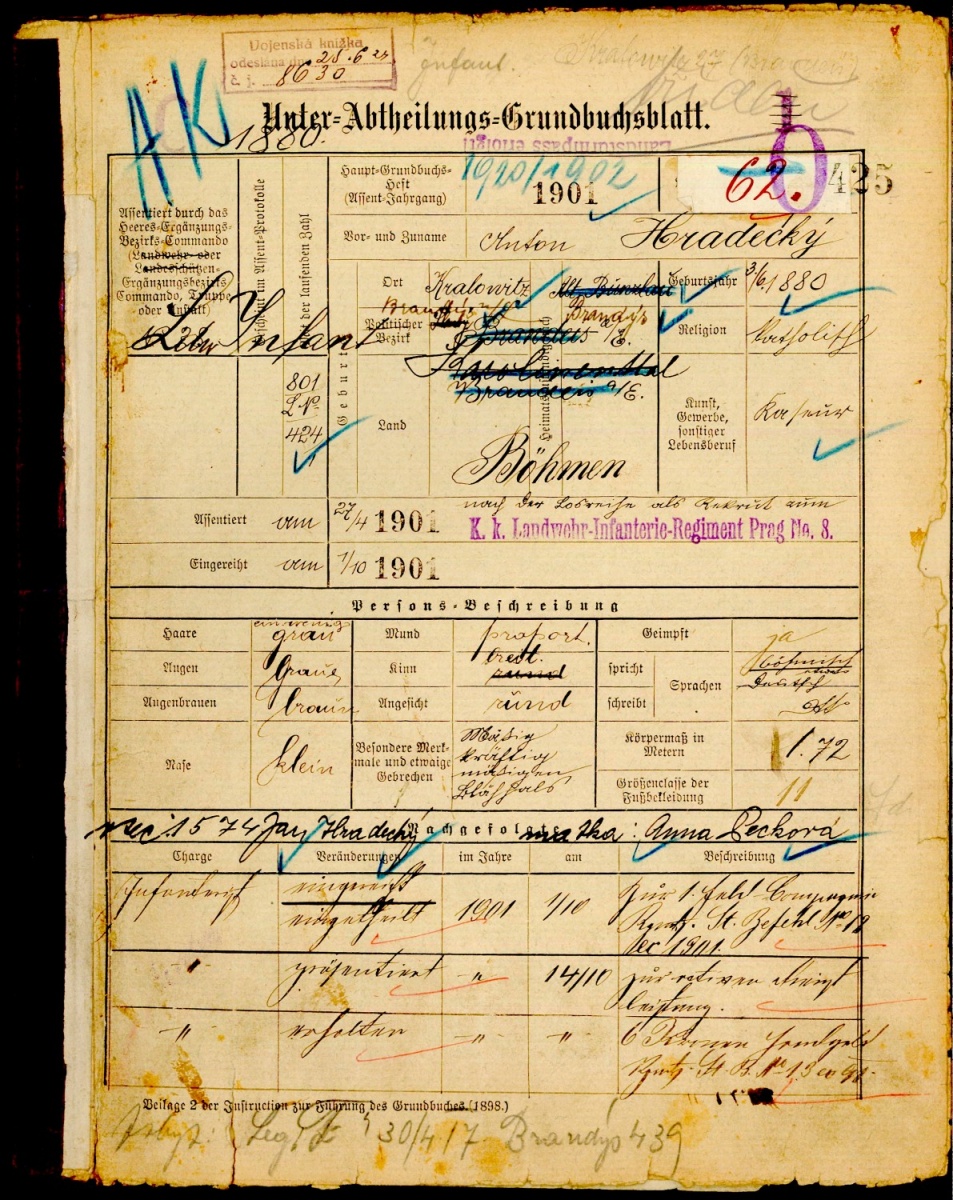 Vojenská knížka
odeslána dne 28.6 27
č. j. 8630
Infant. Kralowitz
AK
Unter-Abtheilungs-Grundbuchsblatt.
1880.
Landsturmpass erfolgt
Assentiert durch das
Heeres-Ergänzungs-
Bezirks-Commando
(Landwehr- oder
Landesschützen-
Ergänzungsbezirks
Commando, Truppe
oder Anstalt)
Infant
Assent-Protokolle
der laufenden Zahl
801
L.No
424
Haupt-Grundbuchs-
Heft
(Assent-Jahrgang)
1920/1902
1901
62.
b
425
Vor- und Zuname
Anton Hradecký
Geburts
Ort
Kralowitz
Alt Bunzlau
Geburtsjahr
3/6 1880
Brandýs n/L
Brandýs
Politischer
Bezirk
Brandeis a/E.
Religion
katholisch
Karolinenthal
Brandeis a/E.
Land
Böhmen
Heimatszuständig
Kunst,
Gewerbe,
sonstiger
Lebensberuf
Kaseur
Assentiert am 27/4 1901
nach der Losreihe als Rekrut zum
K. k. Landwehr-Infanterie-Regiment Prag No. 8.
Eingereiht am 1/10 1901
Persons-Beschreibung
Haare grau
Mund proport.
Geimpft ja
Augen braun
Kinn rund
spricht
Sprachen
böhmisch
deutsch
Augenbrauen braun
Angesicht rund
schreibt
Nase klein
Besondere Merk-
male und etwaige
Gebrechen
Mäßig
kräftig
mäßigen
Blähhals
Körpermaß in
Metern
1.72
Größenclasse der
Fußbekleidung
11
1574 Jan Hradecký Nachgefolgte matka: Anna Pecková
Charge
Veränderungen
im Jahre
am
Beschreibung
Infanterist
eingereiht
eingetheilt
1901
1/10
Zur 1. Feld-Compagnie
Rgmts. St. Befehl No 12
1901.
"
präsentiert
"
14/10
zur activen Dienst
leistung.
"
erhalten
"
"
6 Kronen Handgeld
Rgmts. St. B. No 13
Beilage 2 der Instruction zur Führung des Grundbuches (1898.)
30/4 17 Brandýs 439